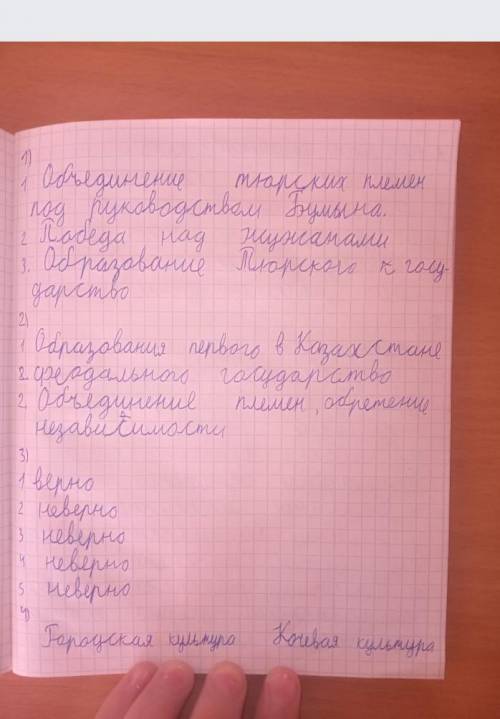 1)
1 Объединение тюрских племен
под руководством Бумына.
2 Победа над жужанами
3. Образование Тюрского к госу-
дарство
2)
1 Образования первого в Казахстане
2. феодального государство
2 Объединение племен, обретение
независимости
3)
1 верно
2 неверно
3 неверно
4 неверно
5 неверно
4)
Городская культура Кочевая культура